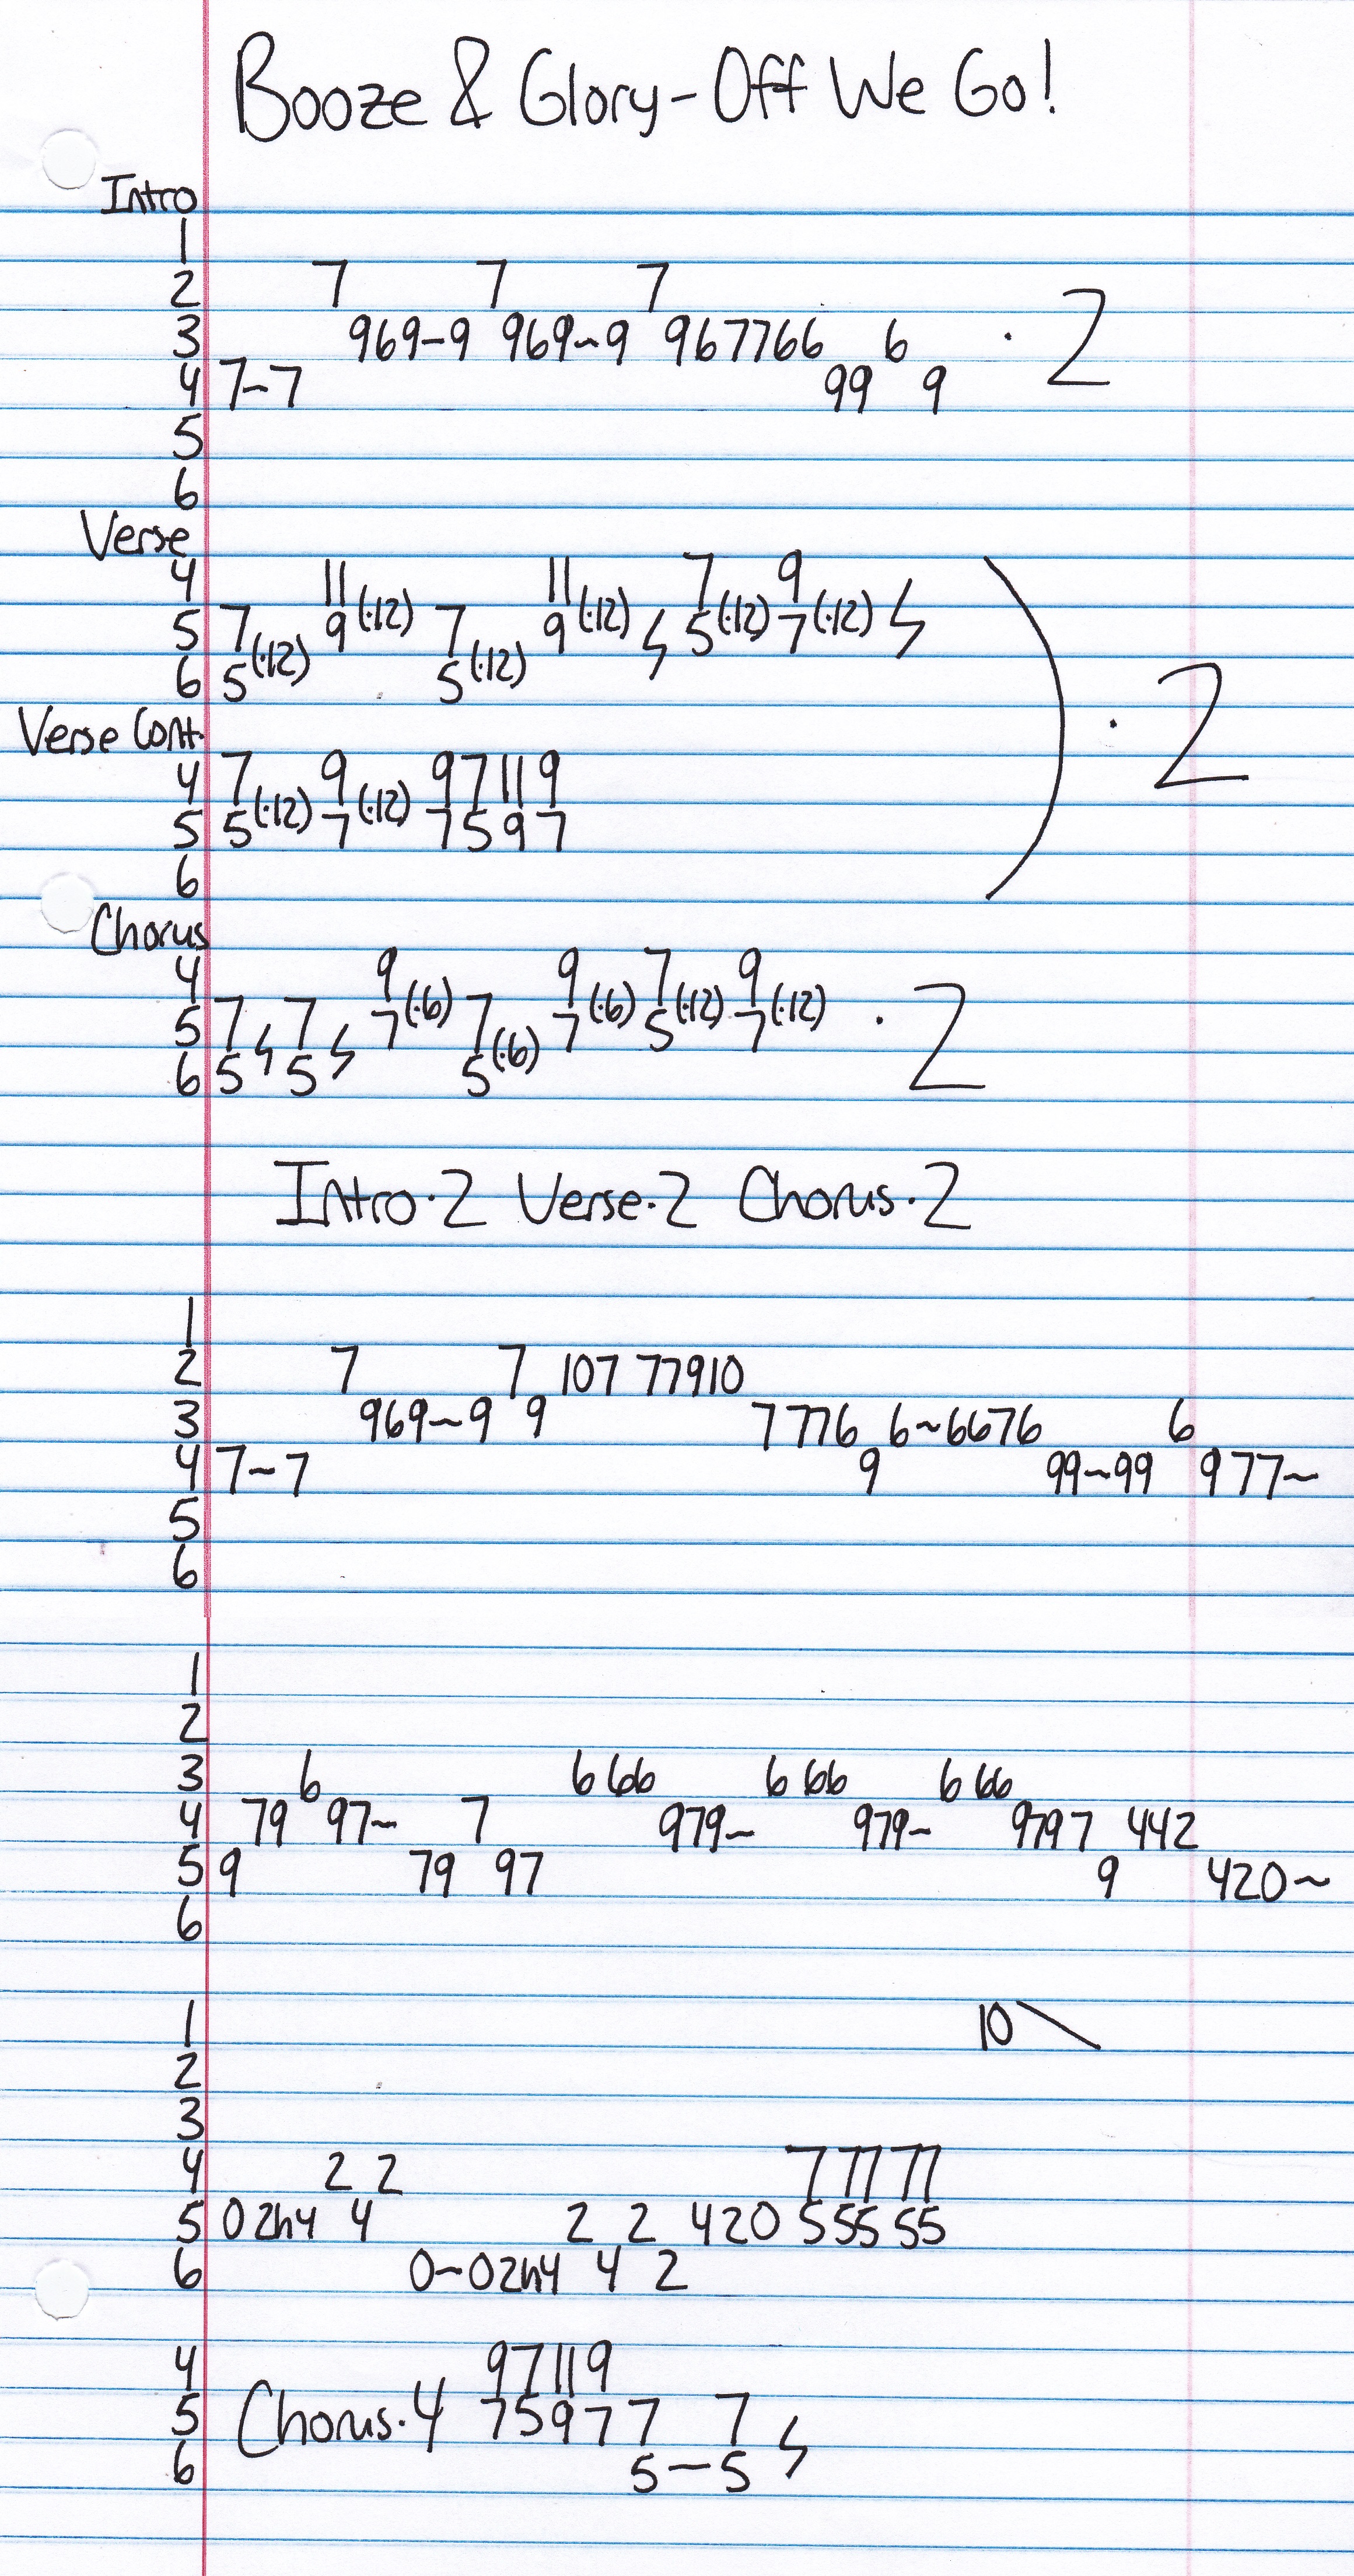 Booze & Glory - Off We Go!
Intro
1
2 7 7 7
3 969-9 969~9 967766 6 · 2
4 7-7 99 9
5
6
Verse
4 11 11 7 9
5 7 9 (·12) 7 9 (·12) ϟ 5 (·12) 7 (·12) ϟ
6 5 (·12) 5 (·12)
) · 2
Verse Cont.
4 7 9 9 7 11 9
5 5 (·12) 7 (·12) 7 5 9 7
6
Chorus
4 9 9 7 9
5 7 ϟ 7 ϟ 7 (·6) 7 7 (·6) 5 (·12) 7 (·12) · 2
6 5 5 5 (·6)
Intro·2 Verse·2 Chorus·2
1
2 7 7 107 77910
3 969~9 9 7 776 6~6676 6
4 7~7 9 99~99 977~
5
6
1
2
3 6 6 66 6 66 6 66
4 79 97~ 7 979~ 979~ 979 7 442
5 9 79 97 9 420~
6
1 10 \
2
3
4 2 2 7 77 77
5 0 2h4 4 2 2 420 5 55 55
6 0~02h4 4 2
4 9 7 11 9
5 Chorus·4 7 5 9 7 7 7 ϟ
6 5~5